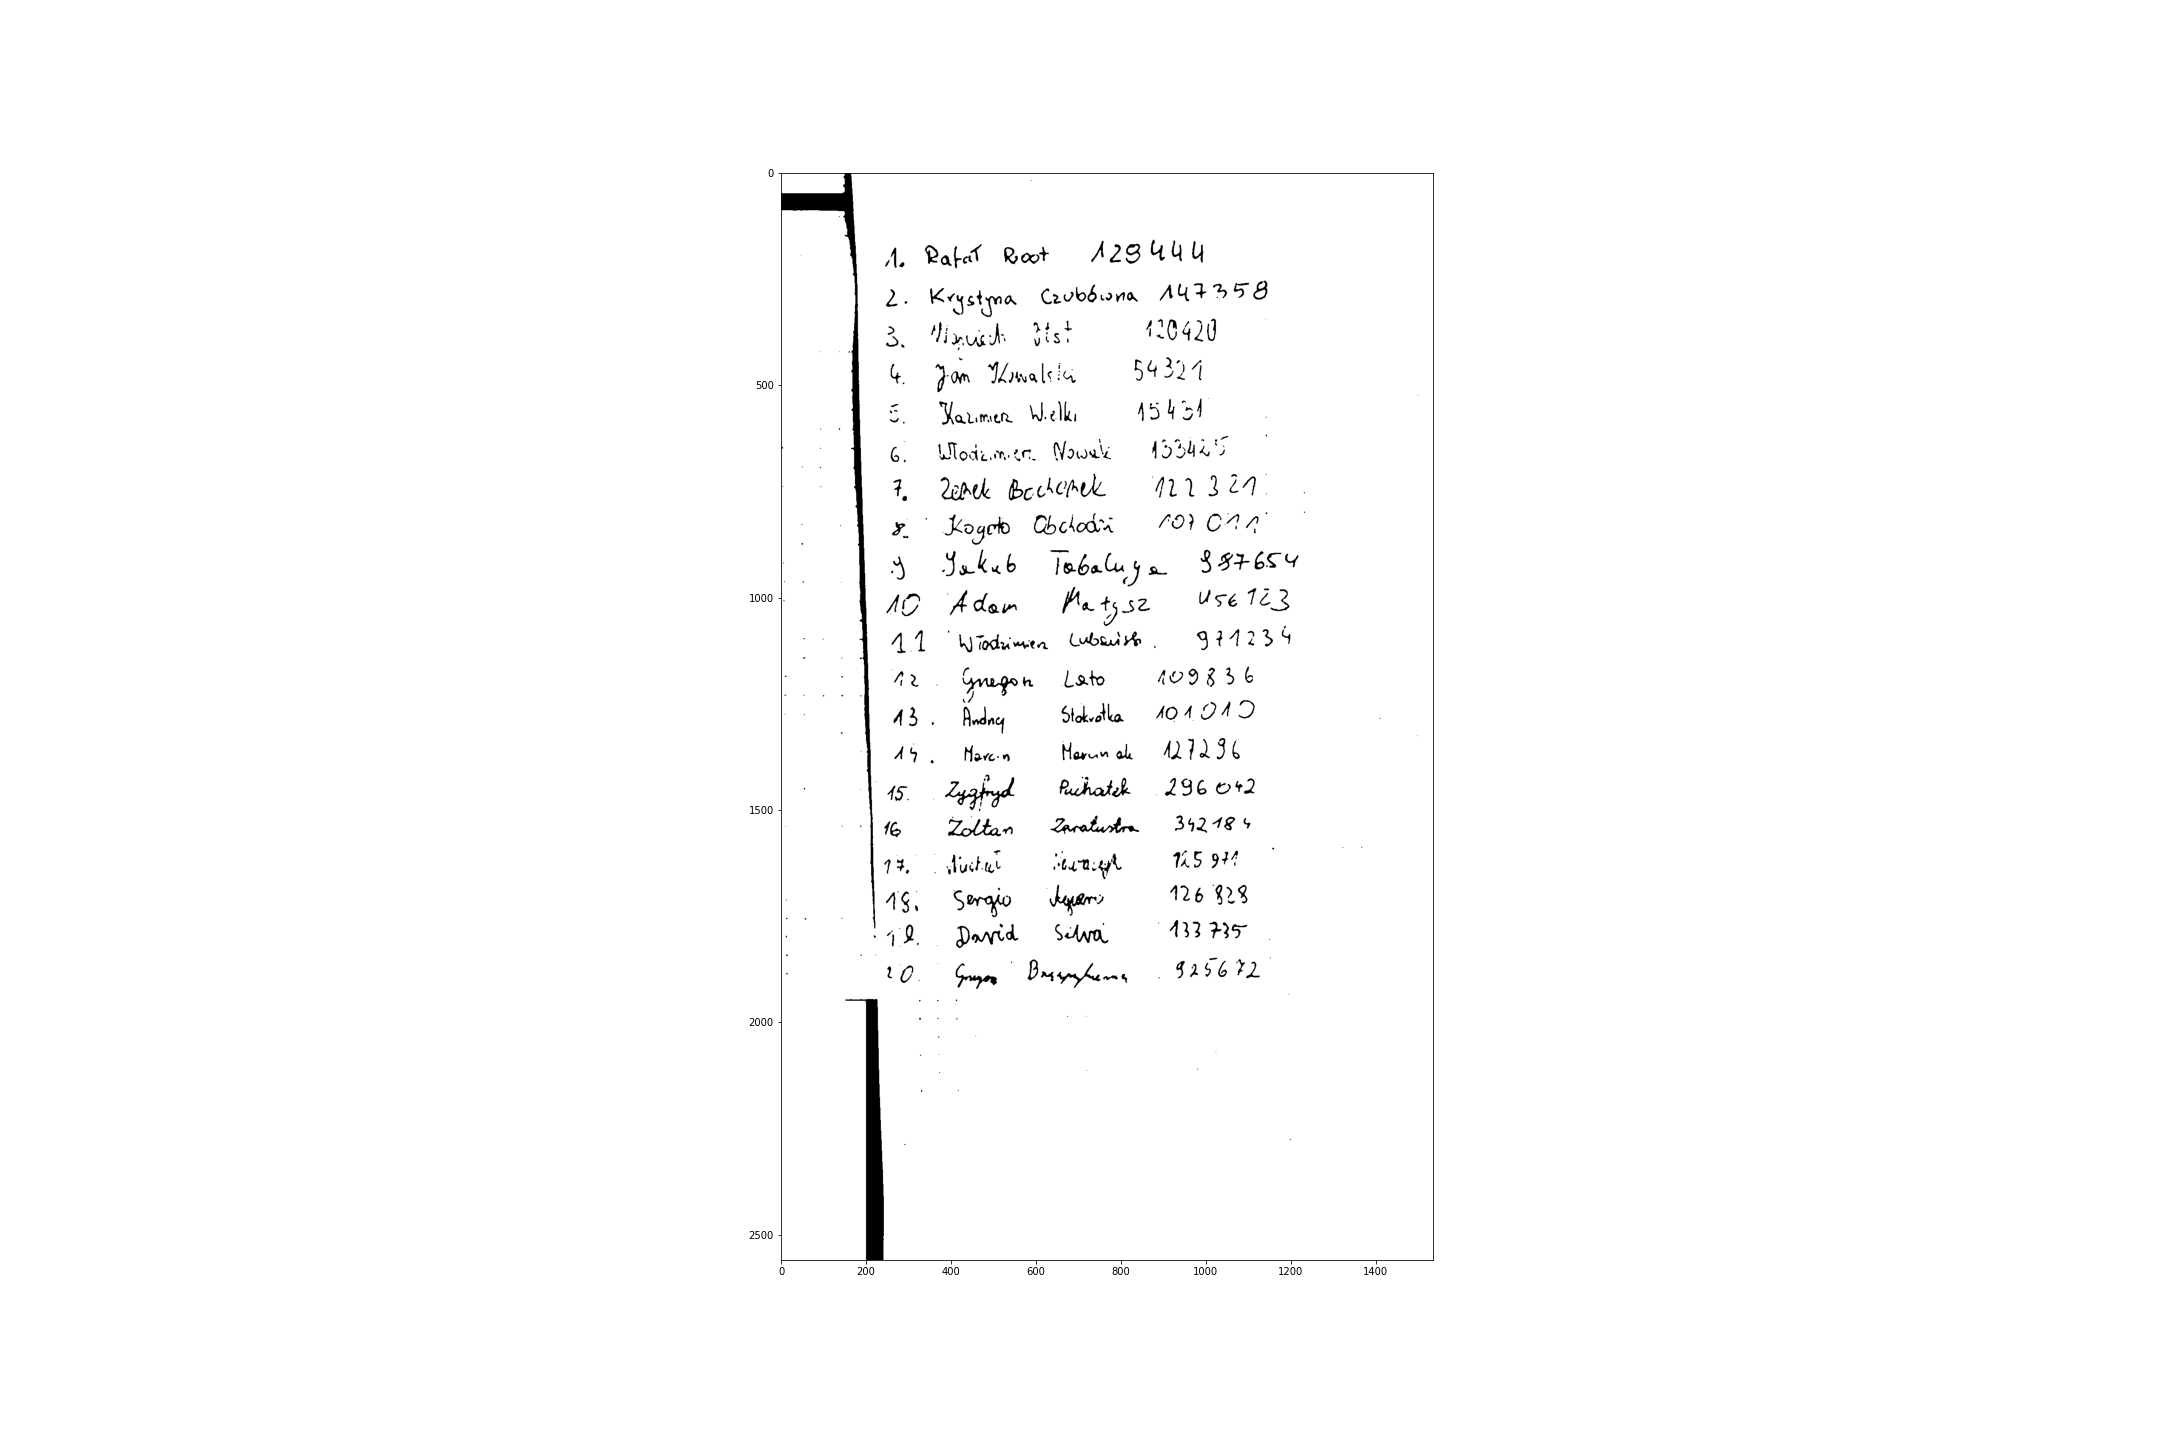 0
500
1000
1500
2000
2500
1. Rafał Root 129444
2. Krystyna Czubówna 147358
3. 120420
4. Jan Kowalski 54321
5. Kazimierz Wielki 15431
6. Włodzimierz Nowak 133425
7. Zenek Bochenek 122321
8. Kogoto Obchodzi 107011
9 Jakub Tabaluga 987654
10 Adam Małysz 456123
11 Włodzimierz 971234
12 Grzegorz Lato 109836
13. Andrzej Stokrotka 101010
14. Marcin Marciniak 127296
15. Zygfryd Puchatek 296042
16 Zoltan Zaratustra 342184
17. Michał 125971
18. Sergio 126828
19. David Silva 133735
20. 925672
0 200 400 600 800 1000 1200 1400